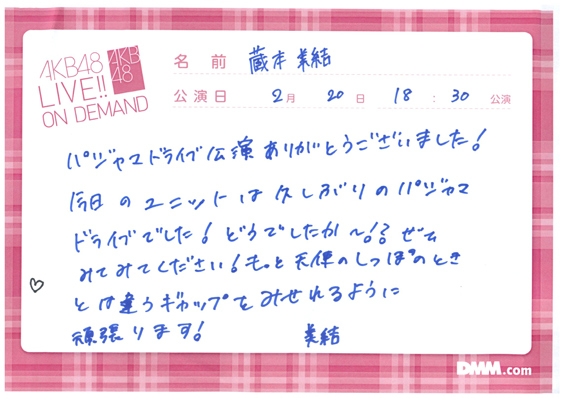 AKB48
LIVE!!
ON DEMAND
AKB
48
名前 蔵本美結
公演日 2月 20日 18:30 公演
パジャマドライブ公演ありがとうございました!
今日のユニットは久しぶりのパジャマ
ドライブでした!どうでしたか〜!?ぜひ
みてみてください!もっと天使のしっぽのとき
とは違うギャップをみせれるように
頑張ります! 美結
DMM.com